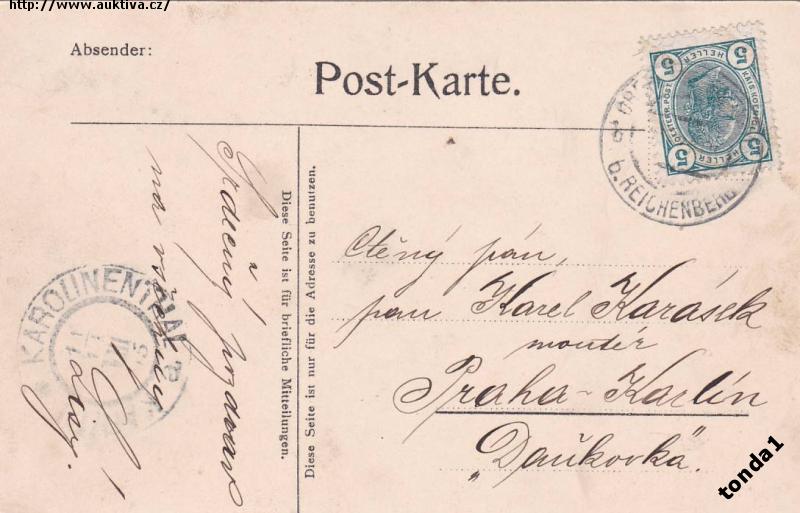 http://www.auktiva.cz/
Absender:
Post-Karte.
5 HELLER 5
KAIS. KÖNIGL. OESTERR. POST
5 HELLER 5
b. REICHENBERG
Srdečný pozdrav
na
Diese Seite ist für briefliche Mitteilungen.
Diese Seite ist nur für die Adresse zu benutzen.
KAROLINENTHAL
Ctěný pán,
pan Karel Karásek
montér
Praha-Karlín
„Daňkovka“.
tonda1